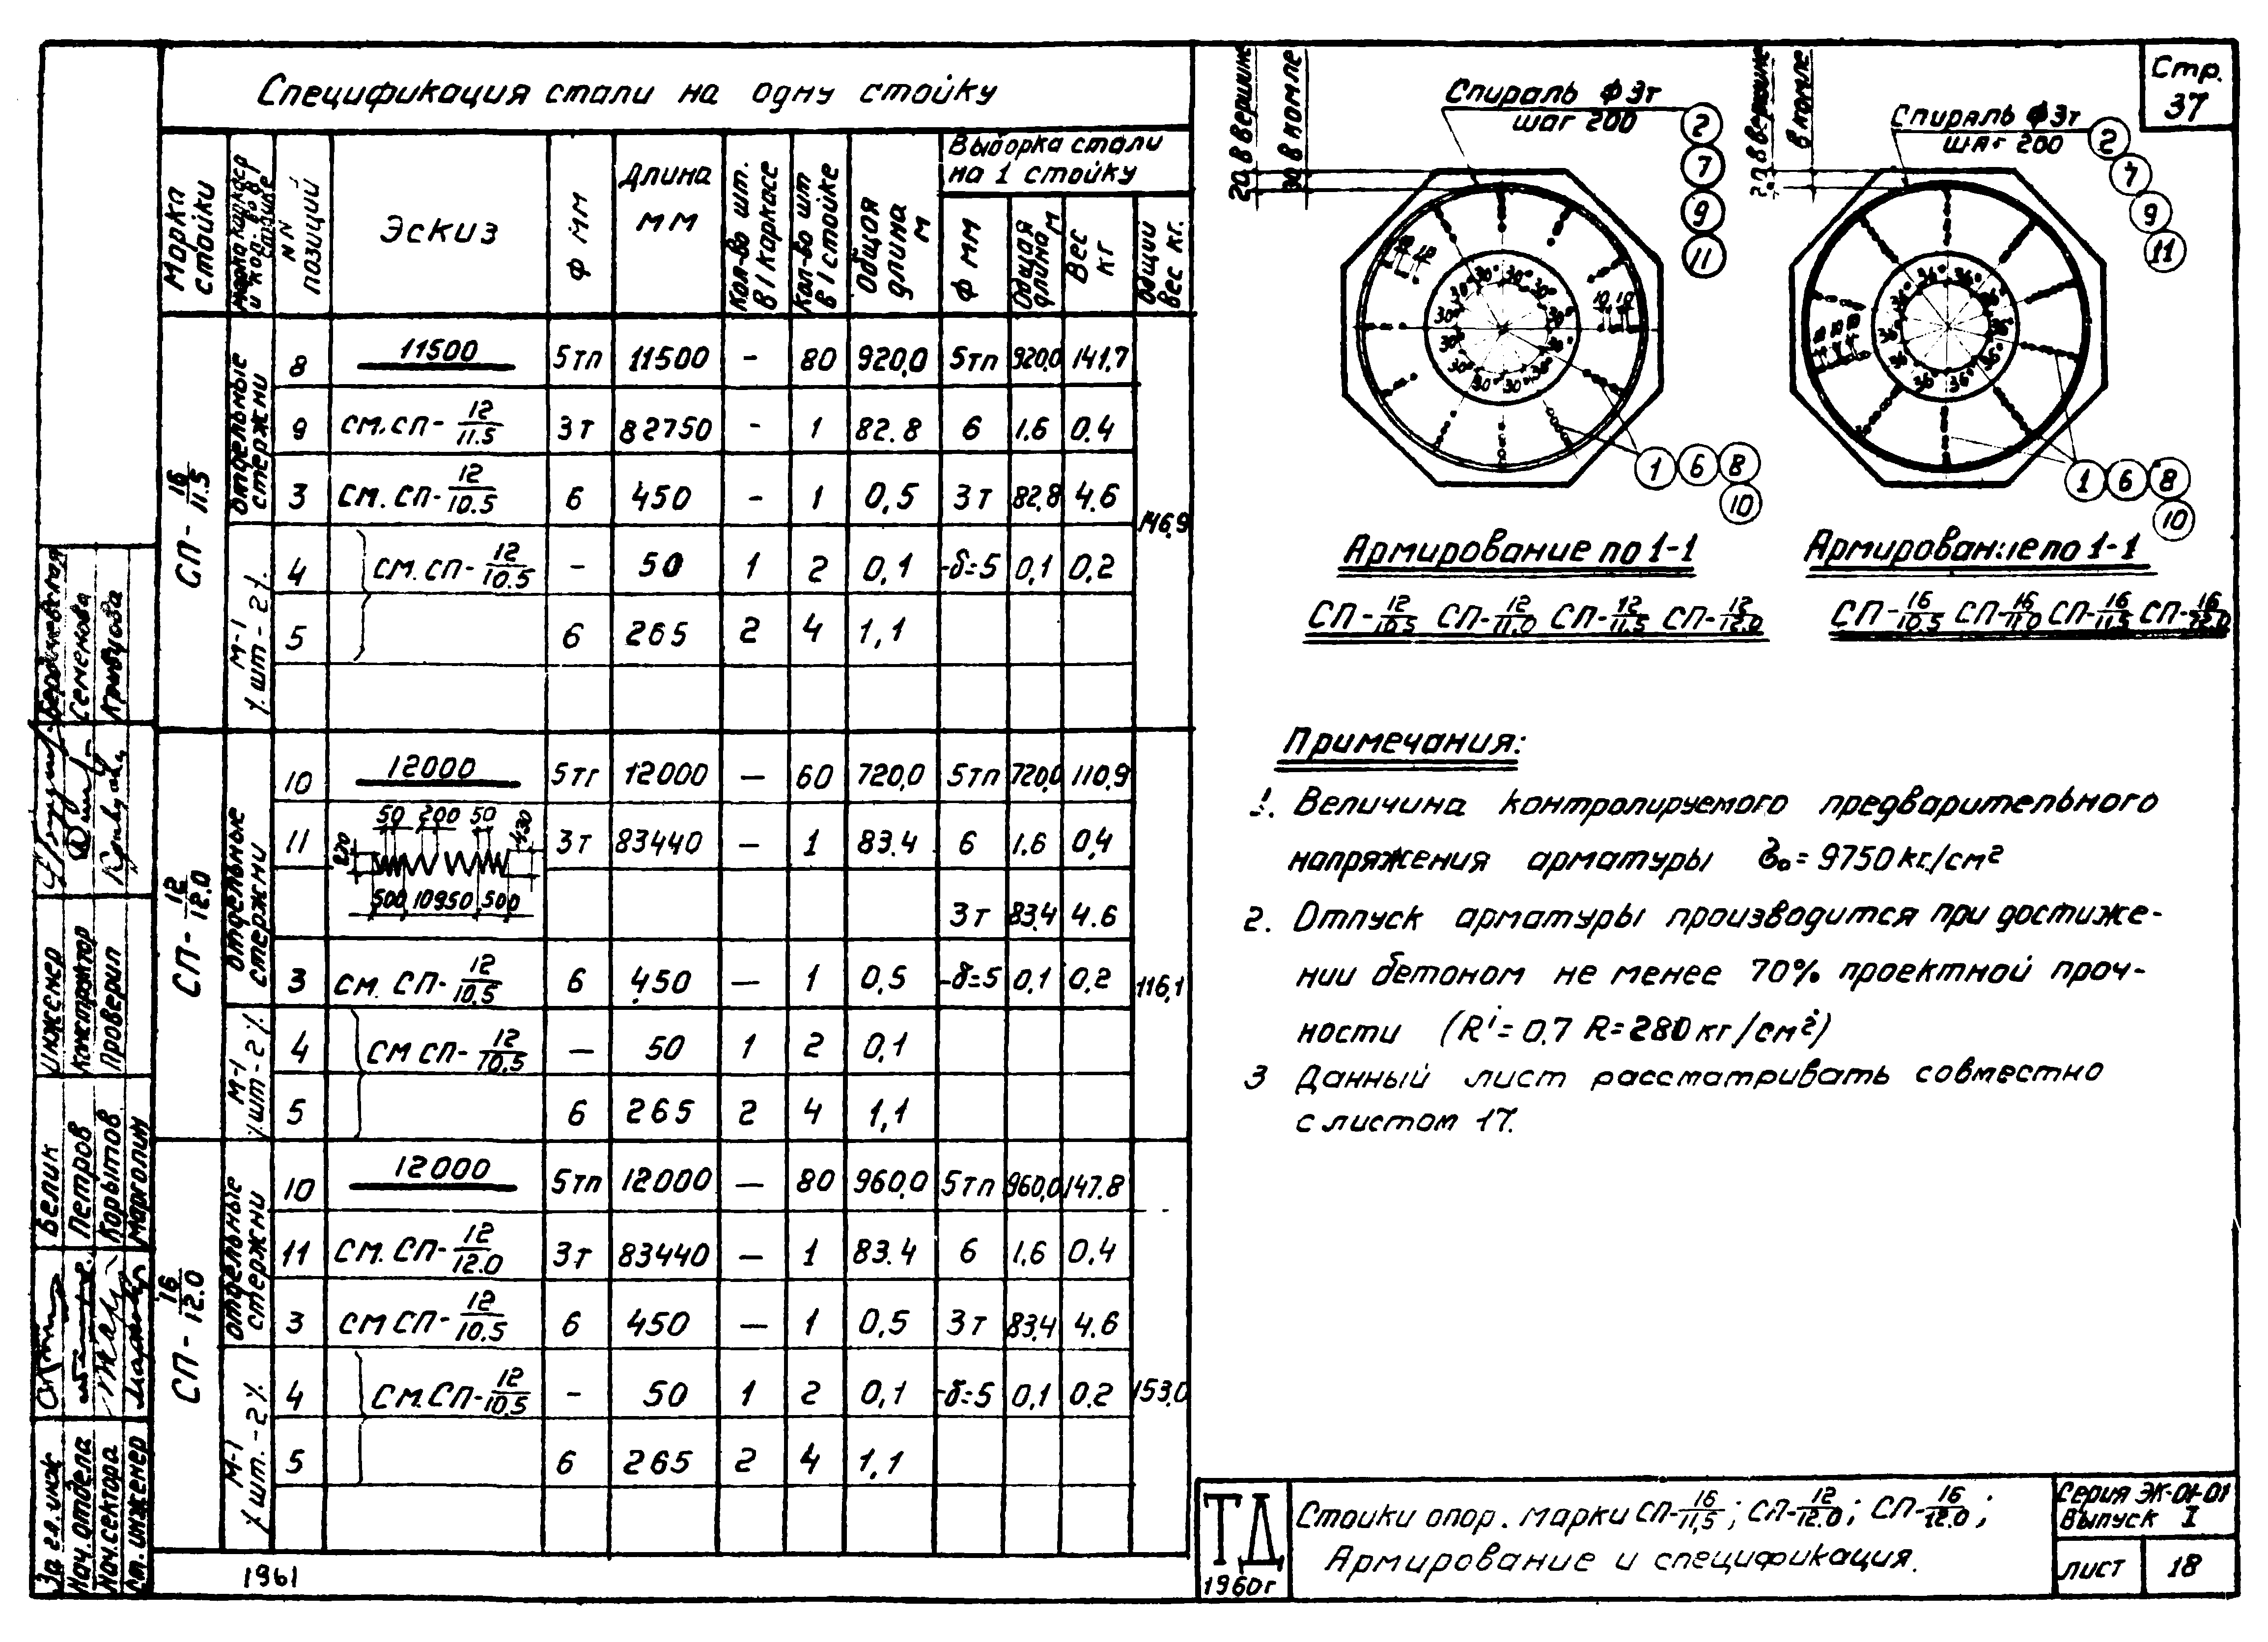 Спецификация стали на одну стойку
Марка стойки
NN позиций
Эскиз
ф мм
Длина мм
Кол-во шт. в 1 каркасе
Кол-во шт в 1 стойке
Общая длина м
Выборка стали на 1 стойку
ф мм
Общая длина м
Вес кг
Общий вес кг.
СП-16/11.5
Отдельные стержни
8 11500 5тп 11500 - 80 920,0 5тп 920,0 141,7
9 см.сп-12/11.5 3т 82750 - 1 82.8 6 1.6 0.4
3 см.сп-12/10.5 6 450 - 1 0,5 3т 82,8 4.6
146,9
М-1 шт-2
4 см.сп-12/10.5 - 50 1 2 0,1 -δ=5 0,1 0,2
5 6 265 2 4 1,1
СП-12/12.0
Отдельные стержни
10 12000 5тг 12000 — 60 720,0 5тп 720,0 110,9
11 50 200 50 3т 83440 — 1 83.4 6 1.6 0,4
500 10950 500 3т 83.4 4.6
3 см. СП-12/10.5 6 450 — 1 0,5 -δ=5 0,1 0,2
116,1
М-1 шт-2
4 см сп-12/10.5 — 50 1 2 0,1
5 6 265 2 4 1,1
СП-16/12.0
Отдельные стержни
10 12000 5тп 12000 — 80 960,0 5тп 960,0 147.8
11 см. СП-12/12.0 3т 83440 — 1 83.4 6 1,6 0,4
3 см СП-12/10.5 6 450 — 1 0,5 3т 83,4 4.6
М-1 шт.-2
4 см.СП-12/10.5 - 50 1 2 0,1 -δ=5 0,1 0.2
153,0
5 6 265 2 4 1,1
1961
20 в вершине
30 в комле
Спираль ф 3т
шаг 200
2
7
9
11
30°
10 10
1 6 8
10
Армирование по 1-1
СП-12/10.5 СП-12/11.0 СП-12/11.5 СП-12/12.0
в вершине
в комле
Спираль ф 3т
шаг 200
2
7
9
11
36°
1 6 8
10
Армирование по 1-1
СП-16/10.5 СП-16/11.0 СП-16/11.5 СП-16/12.0
Стр.
37
Примечания:
1. Величина контролируемого предварительного
напряжения арматуры σ₀=9750кг./см²
2. Отпуск арматуры производится при достиже-
нии бетоном не менее 70% проектной проч-
ности (R'=0,7 R=280кг/см²)
3 Данный лист рассматривать совместно
с листом 17.
ТД
1960г
Стойки опор. марки СП-16/11,5; СП-12/12.0; СП-16/12.0;
Армирование и спецификация.
Серия ЭК-01-01
Выпуск I
лист 18
Семенова
Кривцова
Инженер
Конструктор
Проверил
Белик
Петров
Корытов
Марголин
Нач.отдела
Нач.сектора
Ст.инженер